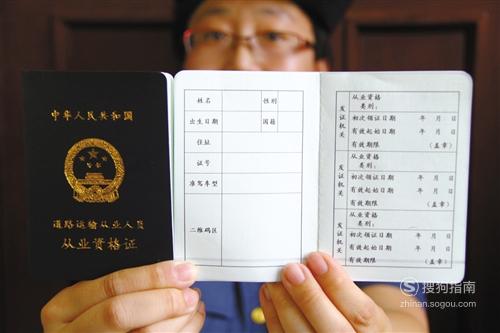 中华人民共和国
道路运输从业人员
从业资格证
姓名 性别
出生日期 国籍
住址
证号
准驾车型
二维码区
发证机关
从业资格
类别：
初次领证日期 年 月 日
有效起始日期 年 月 日
有效期限 （盖章）
发证机关
从业资格
类别：
初次领证日期 年 月 日
有效起始日期 年 月 日
有效期限 （盖章）
发证机关
从业资格
类别：
初次领证日期 年 月 日
有效起始日期 年 月 日
有效期限 （盖章）
搜狗指南
zhinan.sogou.com